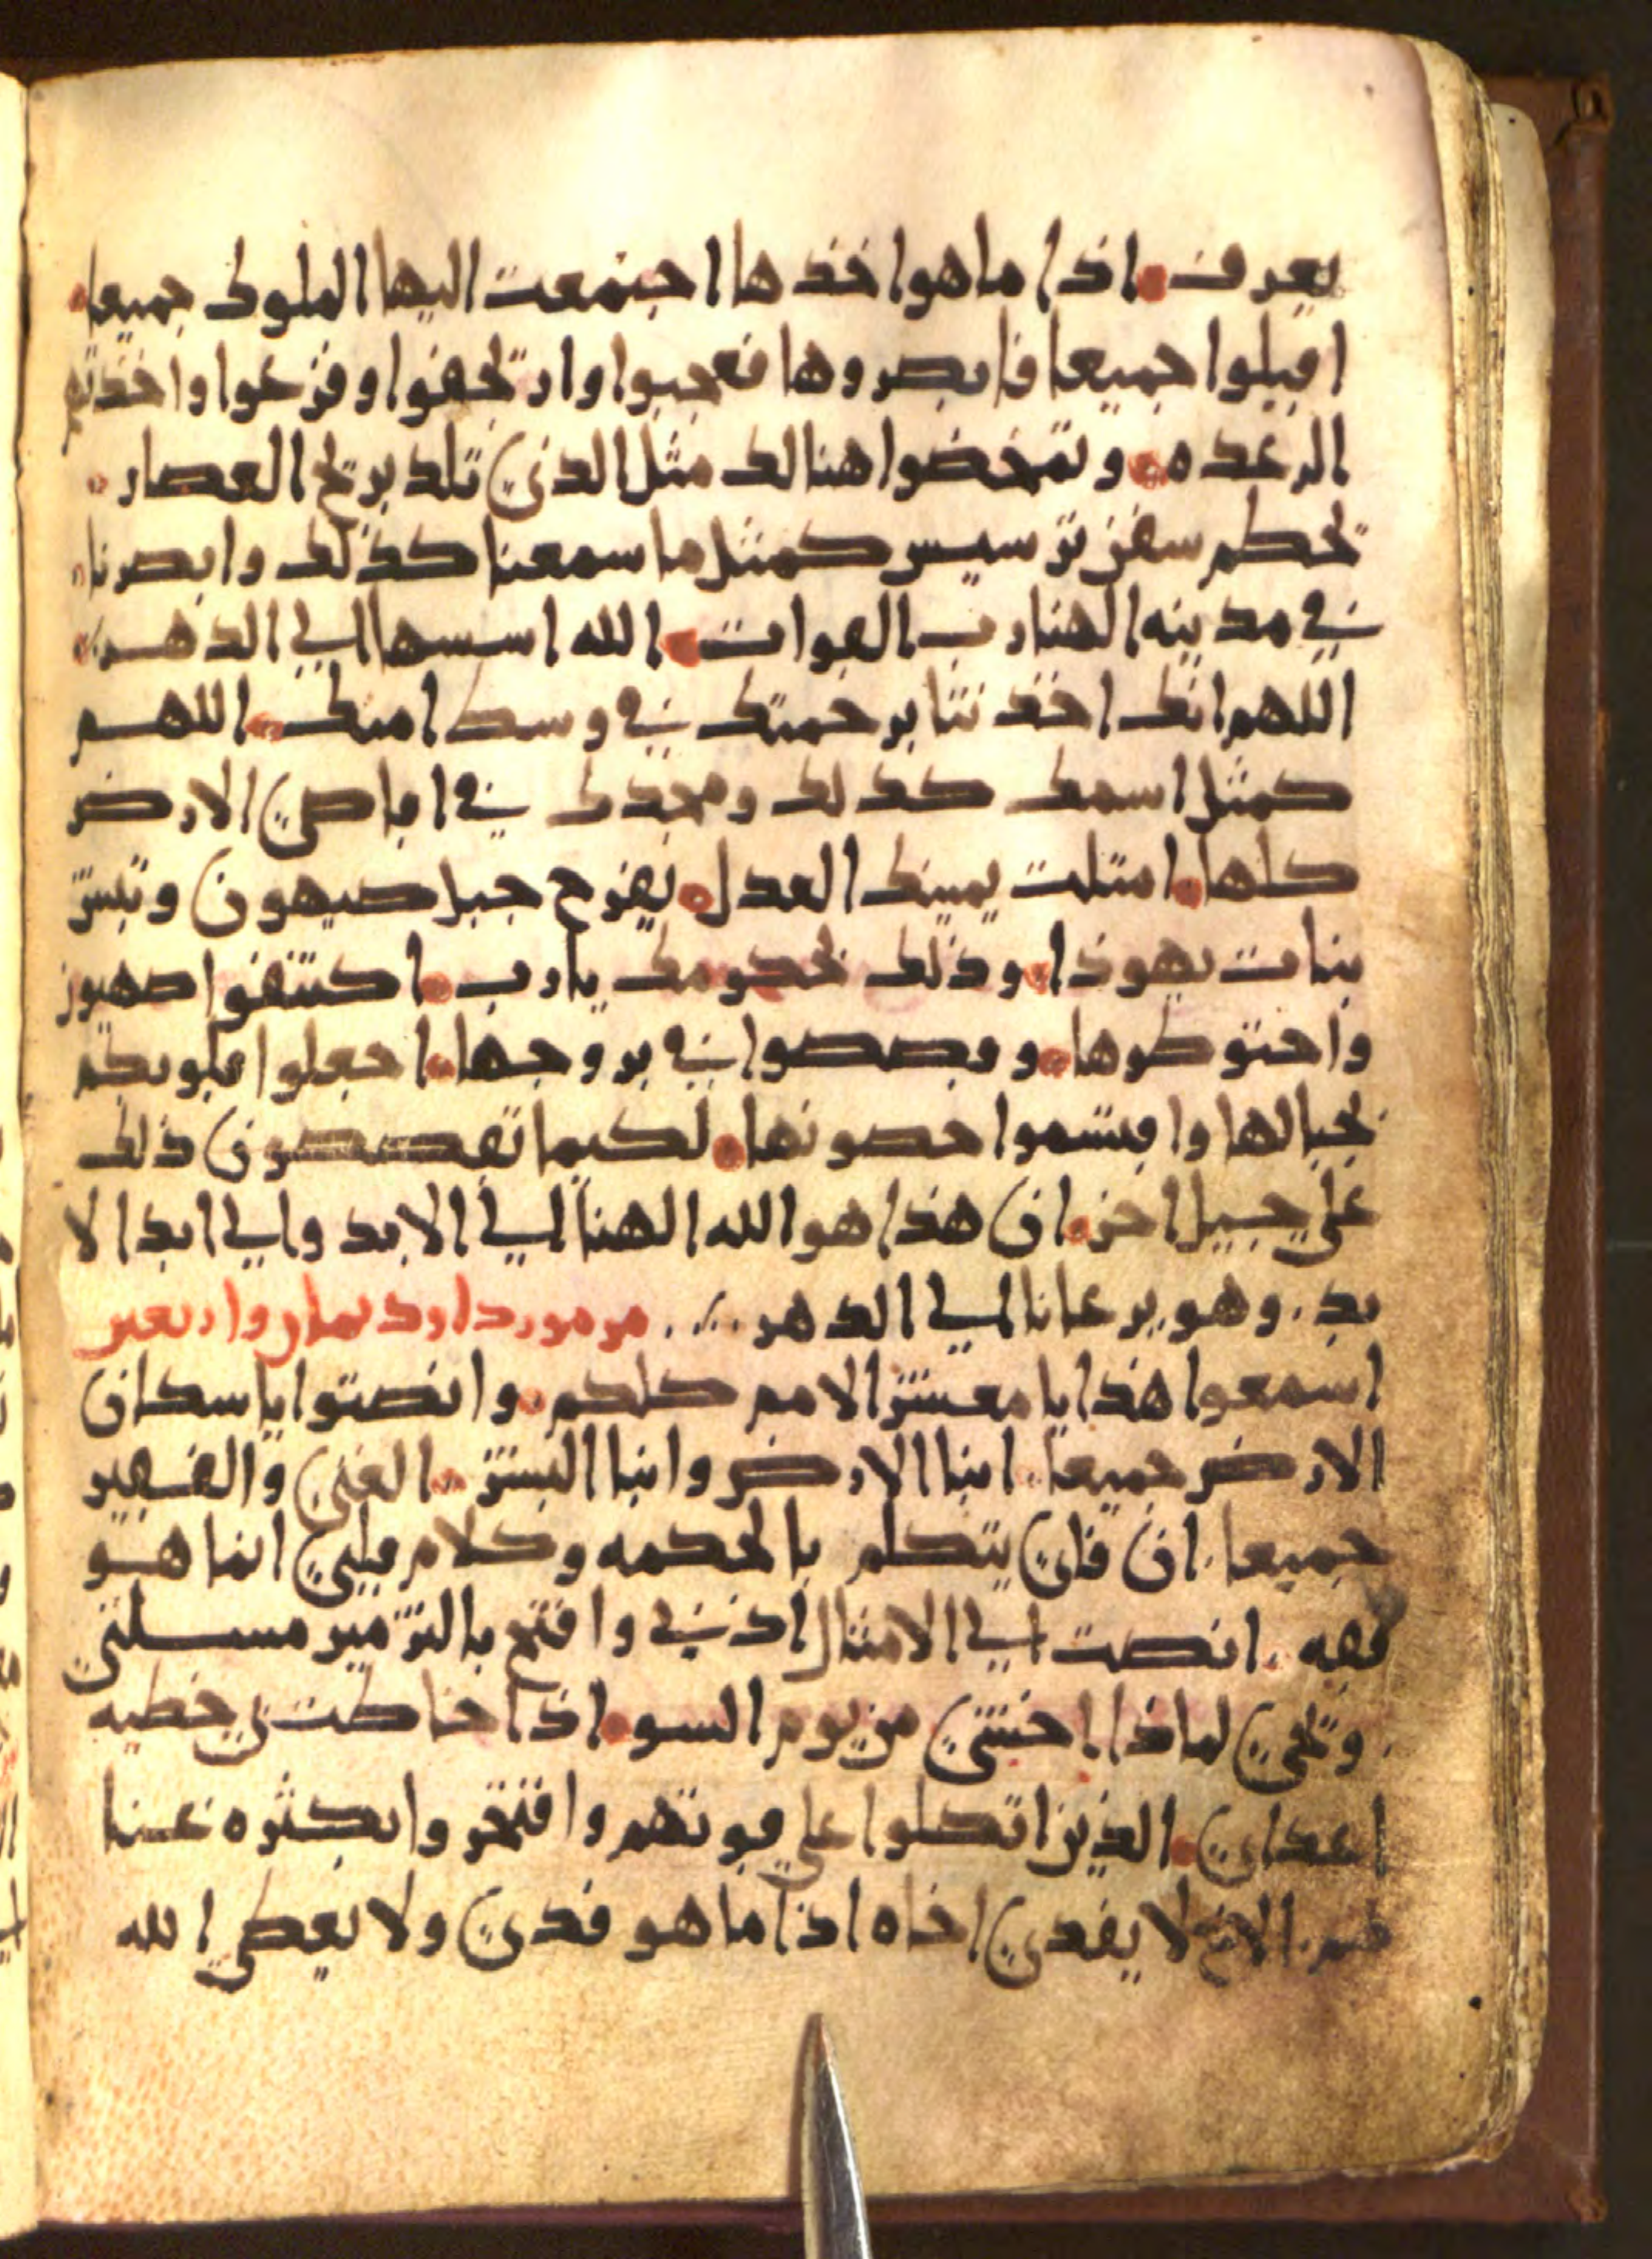 يعرف اذا ما هوا خذها اجتمعت اليها الملوك جميعا
اقبلوا جميعا فابصروها فعجبوا وارتجفوا وفزعوا واخذتهم
الرعده وتمخضوا هنالك مثل الذي تلد بريح العصار
تحطم سفن ترسيس كمثل ما سمعنا كذلك وابصرنا
في مدينه الهنا رب القوات الله اسسها الي الدهر
اللهم انك اخذتنا برحمتك في وسط امتك اللهم
كمثل اسمك كذلك ومجدك في اقاصي الارض
كلها امتلت يمينك العدل يفرح جبل صيهون وتبتشر
بنات يهوذا وذلك لحكومك يا رب اكتنفوا صهيون
واحتوطوها وقصصوا في بروجها اجعلوا قلوبكم
بجبالها واقتسموا حصونها لكيما تقصصون ذلك
علي جيل اخر ان هذا هو الله الهنا الي الابد والي ابد الا
بد وهو يرعانا الي الدهر مزمور داود ثمان واربعين
اسمعوا هذا يا معشر الامم كلكم وانصتوا يا سكان
الارض جميعا ابنا الارض وابنا البشر الغني والفقير
جميعا ان في يتكلم بالحكمه وكلام قلبي انما هو
فقه انصت الي الامثال اذني وافتح بالتزمير مسلتي
لماذا اخشي من يوم السو اذا حاطت بي خطيه
اعداي الذين اتكلوا علي قوتهم وافتخروا بكثره غنا
هم الاخ لا يفدي اخاه اذا ما هو فدي ولا يعطي الله